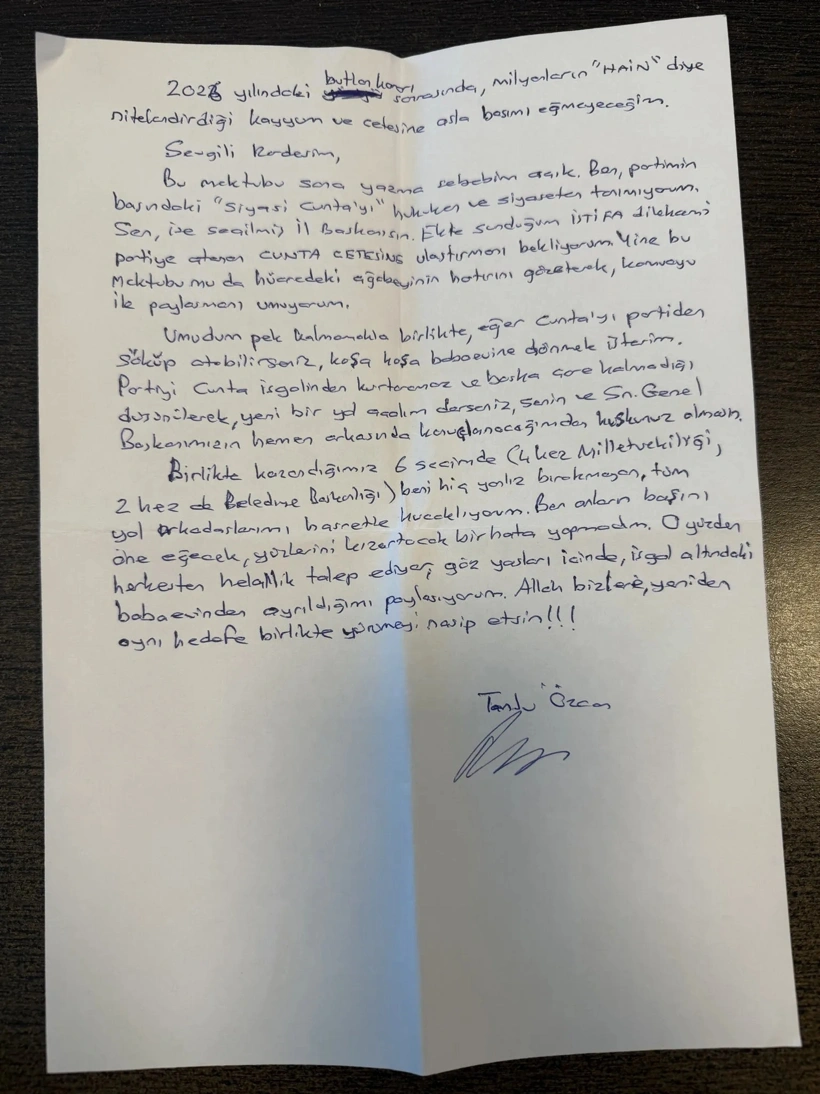 2026 yılındaki butlan kararı sonrasında, milyonların "HAİN" diye
nitelendirdiği kayyum ve çetesine asla başımı eğmeyeceğim.
Sevgili Kardeşim,
Bu mektubu sana yazma sebebim açık. Ben, partimin
başındaki "Siyasi Cunta'yı" hukuken ve siyaseten tanımıyorum.
Sen, ise seçilmiş İl Başkanısın. Ekte sunduğum İSTİFA dilekçemi
partiye atanan CUNTA ÇETESİNE ulaştırmanı bekliyorum. Yine bu
mektubumu da hücredeki ağabeyinin hatırını gözeterek, kamuoyu
ile paylaşmanı umuyorum.
Umudum pek kalmamakla birlikte, eğer Cunta'yı partiden
söküp atabilirseniz, koşa koşa babaevine dönmek isterim.
Partiyi Cunta işgalinden kurtaramaz ve başka çare kalmadığı
düşünülerek, yeni bir yol açalım derseniz, senin ve Sn. Genel
Başkanımızın hemen arkasında konuşlanacağımdan kuşkunuz olmasın.
Birlikte kazandığımız 6 seçimde (4 kez Milletvekilliği,
2 kez de Belediye Başkanlığı) beni hiç yalnız bırakmayan, tüm
yol arkadaşlarımı hasretle kucaklıyorum. Ben onların başını
öne eğecek, yüzlerini kızartacak bir hata yapmadım. O yüzden
herkesten helallik talep ediyor, göz yaşları içinde, işgal altındaki
babaevinden ayrıldığımı paylaşıyorum. Allah bizlere, yeniden
aynı hedefe birlikte yürümeyi nasip etsin!!!
Tanju Özcan